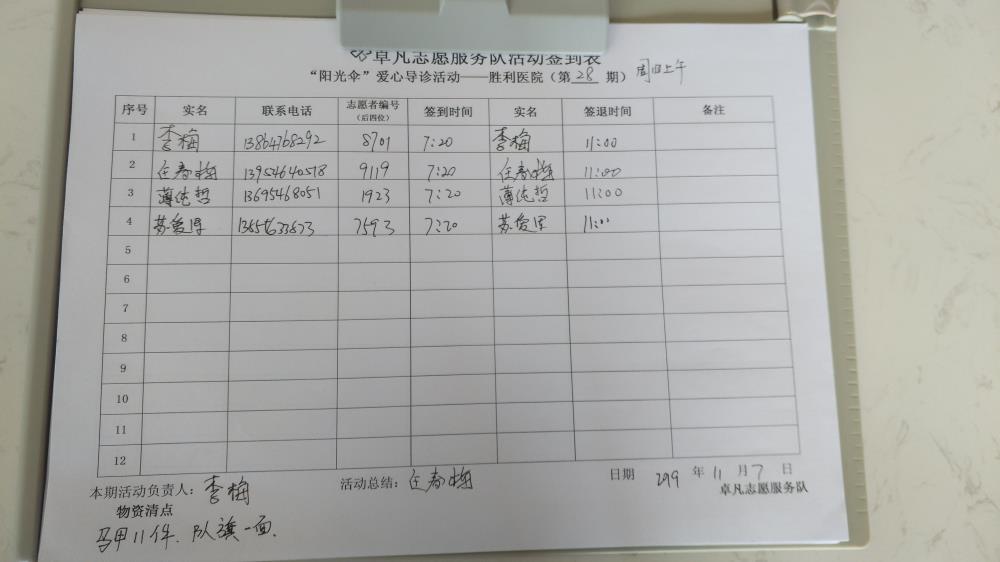 卓凡志愿服务队活动签到表
“阳光伞”爱心导诊活动——胜利医院（第 28 期） 周四上午
序号 实名 联系电话 志愿者编号（后四位） 签到时间 实名 签退时间 备注
1 李梅 13864768292 8701 7:20 李梅 11:00
2 任春梅 13954640518 9119 7:20 任春梅 11:00
3 薄纯哲 13695468051 1923 7:20 薄纯哲 11:00
4 苏爱 7593 7:20 苏爱 11:00
5
6
7
8
9
10
11
12
本期活动负责人：李梅 活动总结：任春梅 日期 年 11 月 7 日
物资清点 卓凡志愿服务队
马甲11件、队旗一面.